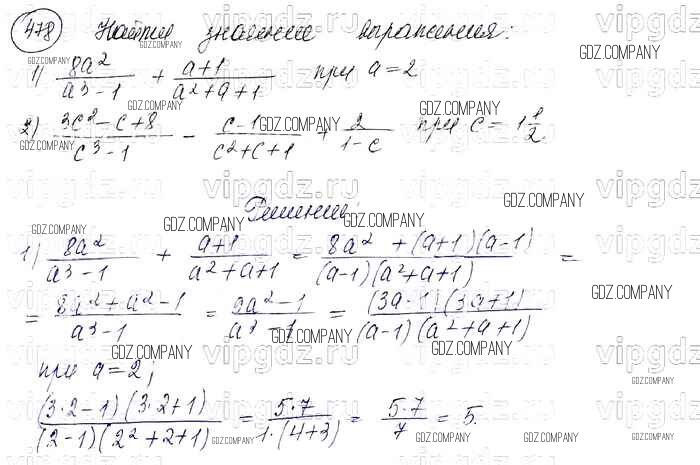 478 Найти значение выражения:
1) 8a²/(a³-1) + (a+1)/(a²+a+1) при a=2
2) (3c²-c+8)/(c³-1) - (c-1)/(c²+c+1) + 2/(1-c) при c = 1 1/2
Решение:
1) 8a²/(a³-1) + (a+1)/(a²+a+1) = (8a²+(a+1)(a-1))/((a-1)(a²+a+1)) =
= (8a²+a²-1)/(a³-1) = (9a²-1)/(a³-1) = ((3a-1)(3a+1))/((a-1)(a²+a+1))
при a=2;
((3·2-1)(3·2+1))/((2-1)(2²+2+1)) = (5·7)/(1·(4+3)) = (5·7)/7 = 5.
GDZ.COMPANY
vipgdz.ru